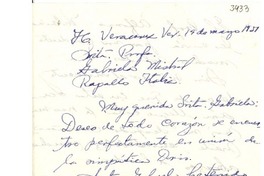 3433
H. Veracruz Ver. 19 de mayo 1951
Srita. Profa.
Gabriela Mistral
Rapallo Italia
Muy querida Srita. Gabriela:
Deseo de todo corazón se encuen
tre perfectamente en unión de
la simpática Doris.